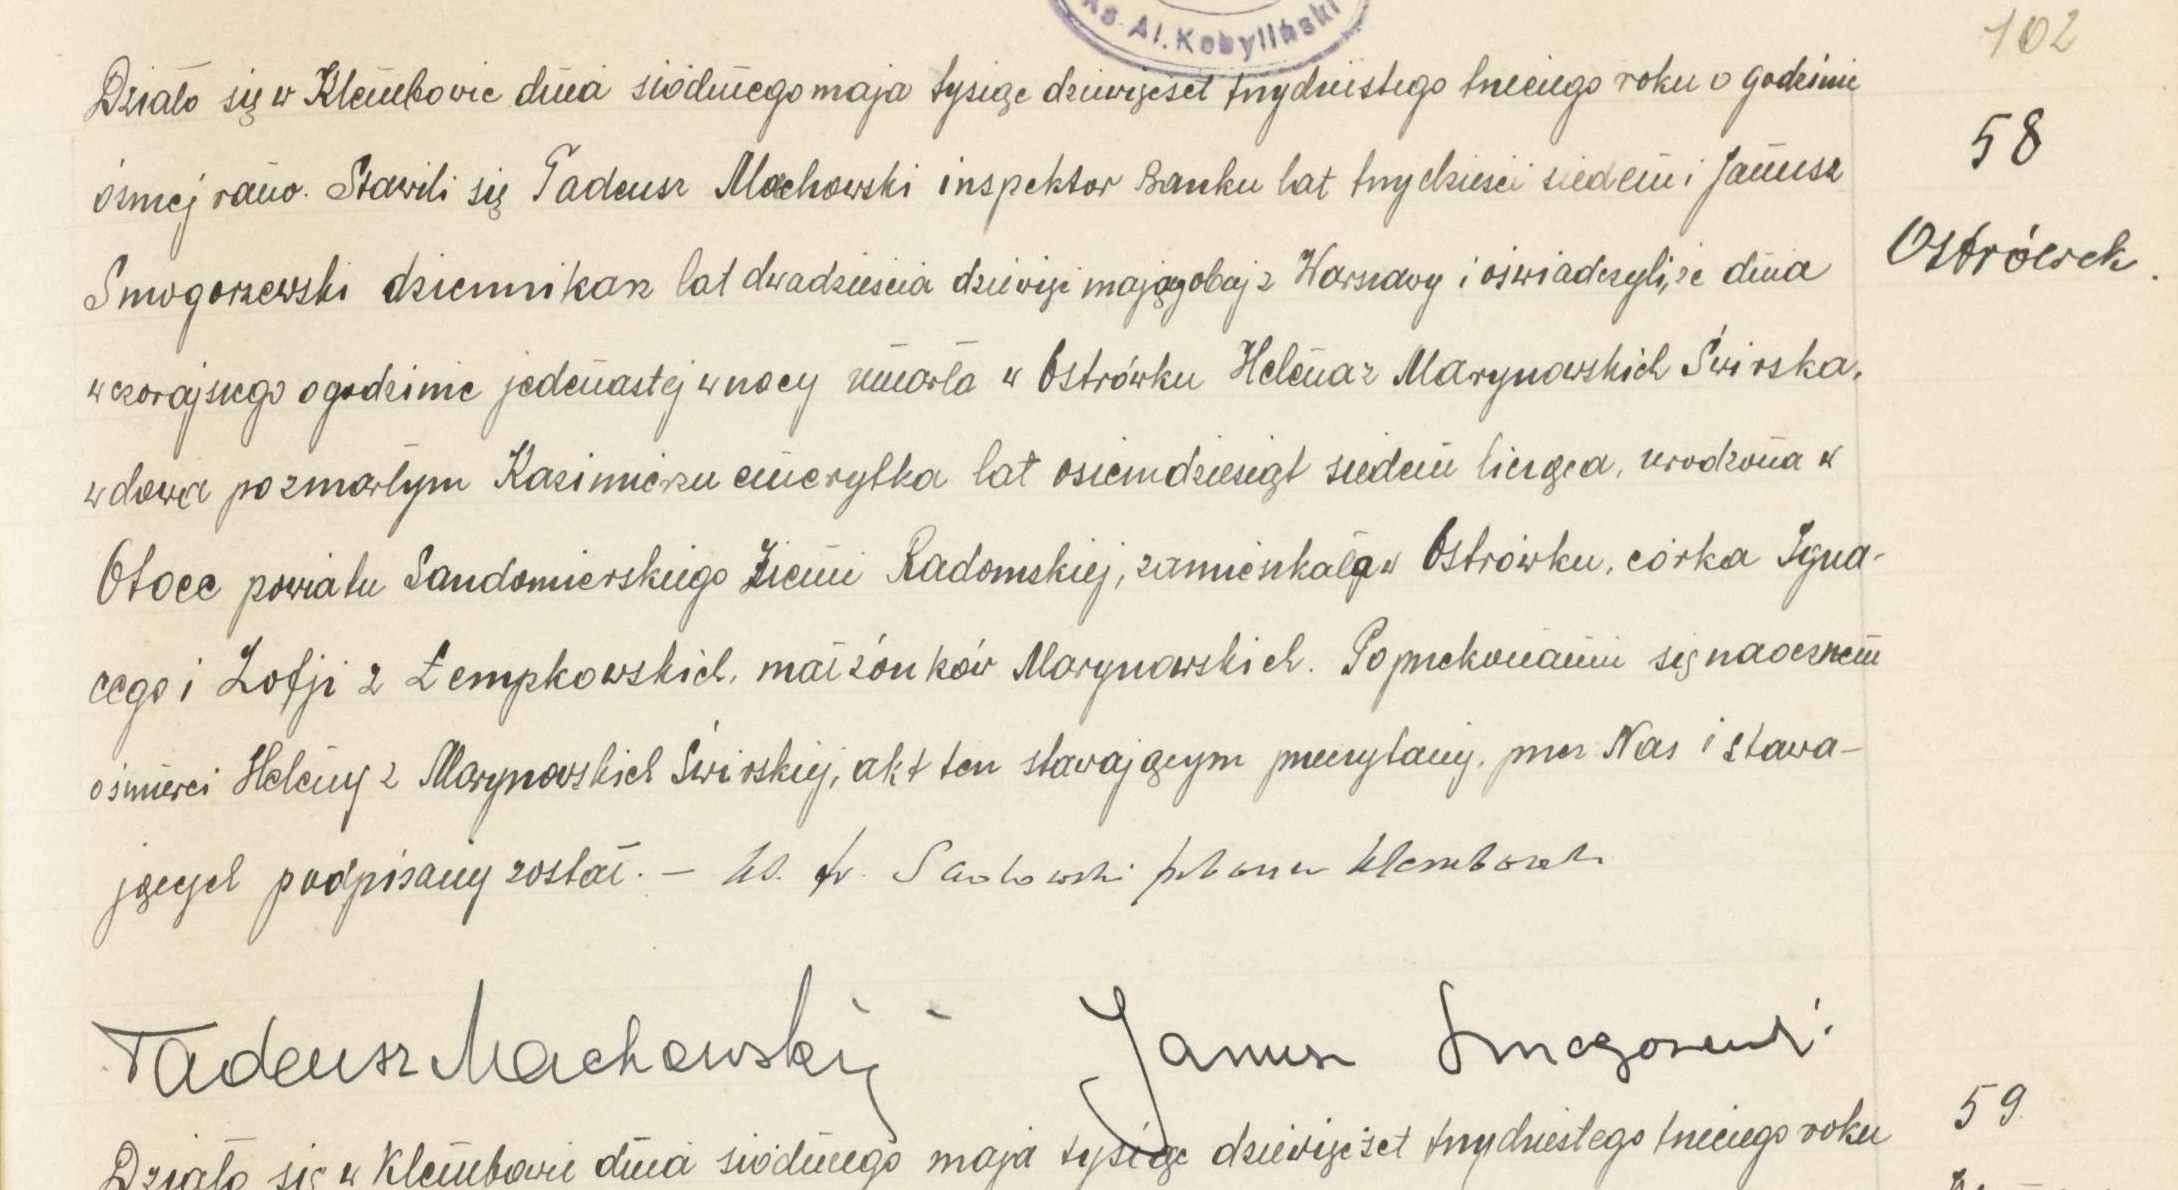 Ks. Al. Kobyliński
102
Działo się w Klembowie dnia siódmego maja tysiąc dziewięćset trzydziestego trzeciego roku o godzinie
58
ósmej rano. Stawili się Tadeusz Machowski inspektor Banku lat trzydzieści siedem i Janusz
Ostrówek.
Smogorzewski dziennikarz lat dwadzieścia dziewięć mający obaj z Warszawy i oświadczyli, że dnia
wczorajszego o godzinie jedenastej w nocy umarła w Ostrówku Helena z Marynowskich Świrska,
wdowa po zmarłym Kazimierzu emerytka lat osiemdziesiąt siedem licząca, urodzona w
Otoce powiatu Sandomierskiego Ziemi Radomskiej, zamieszkała w Ostrówku, córka Igna-
cego i Zofji z Łempkowskich, małżonków Marynowskich. Po przekonaniu się naocznem
o śmierci Heleny z Marynowskich Świrskiej, akt ten stawającym przeczytany, przez Nas i stawa-
jących podpisany został. — Ks. Fr. Sadowski pleban Klembowski
Tadeusz Machowski
Janusz Smogorzewski
59
Działo się w Klembowie dnia siódmego maja tysiąc dziewięćset trzydziestego trzeciego roku